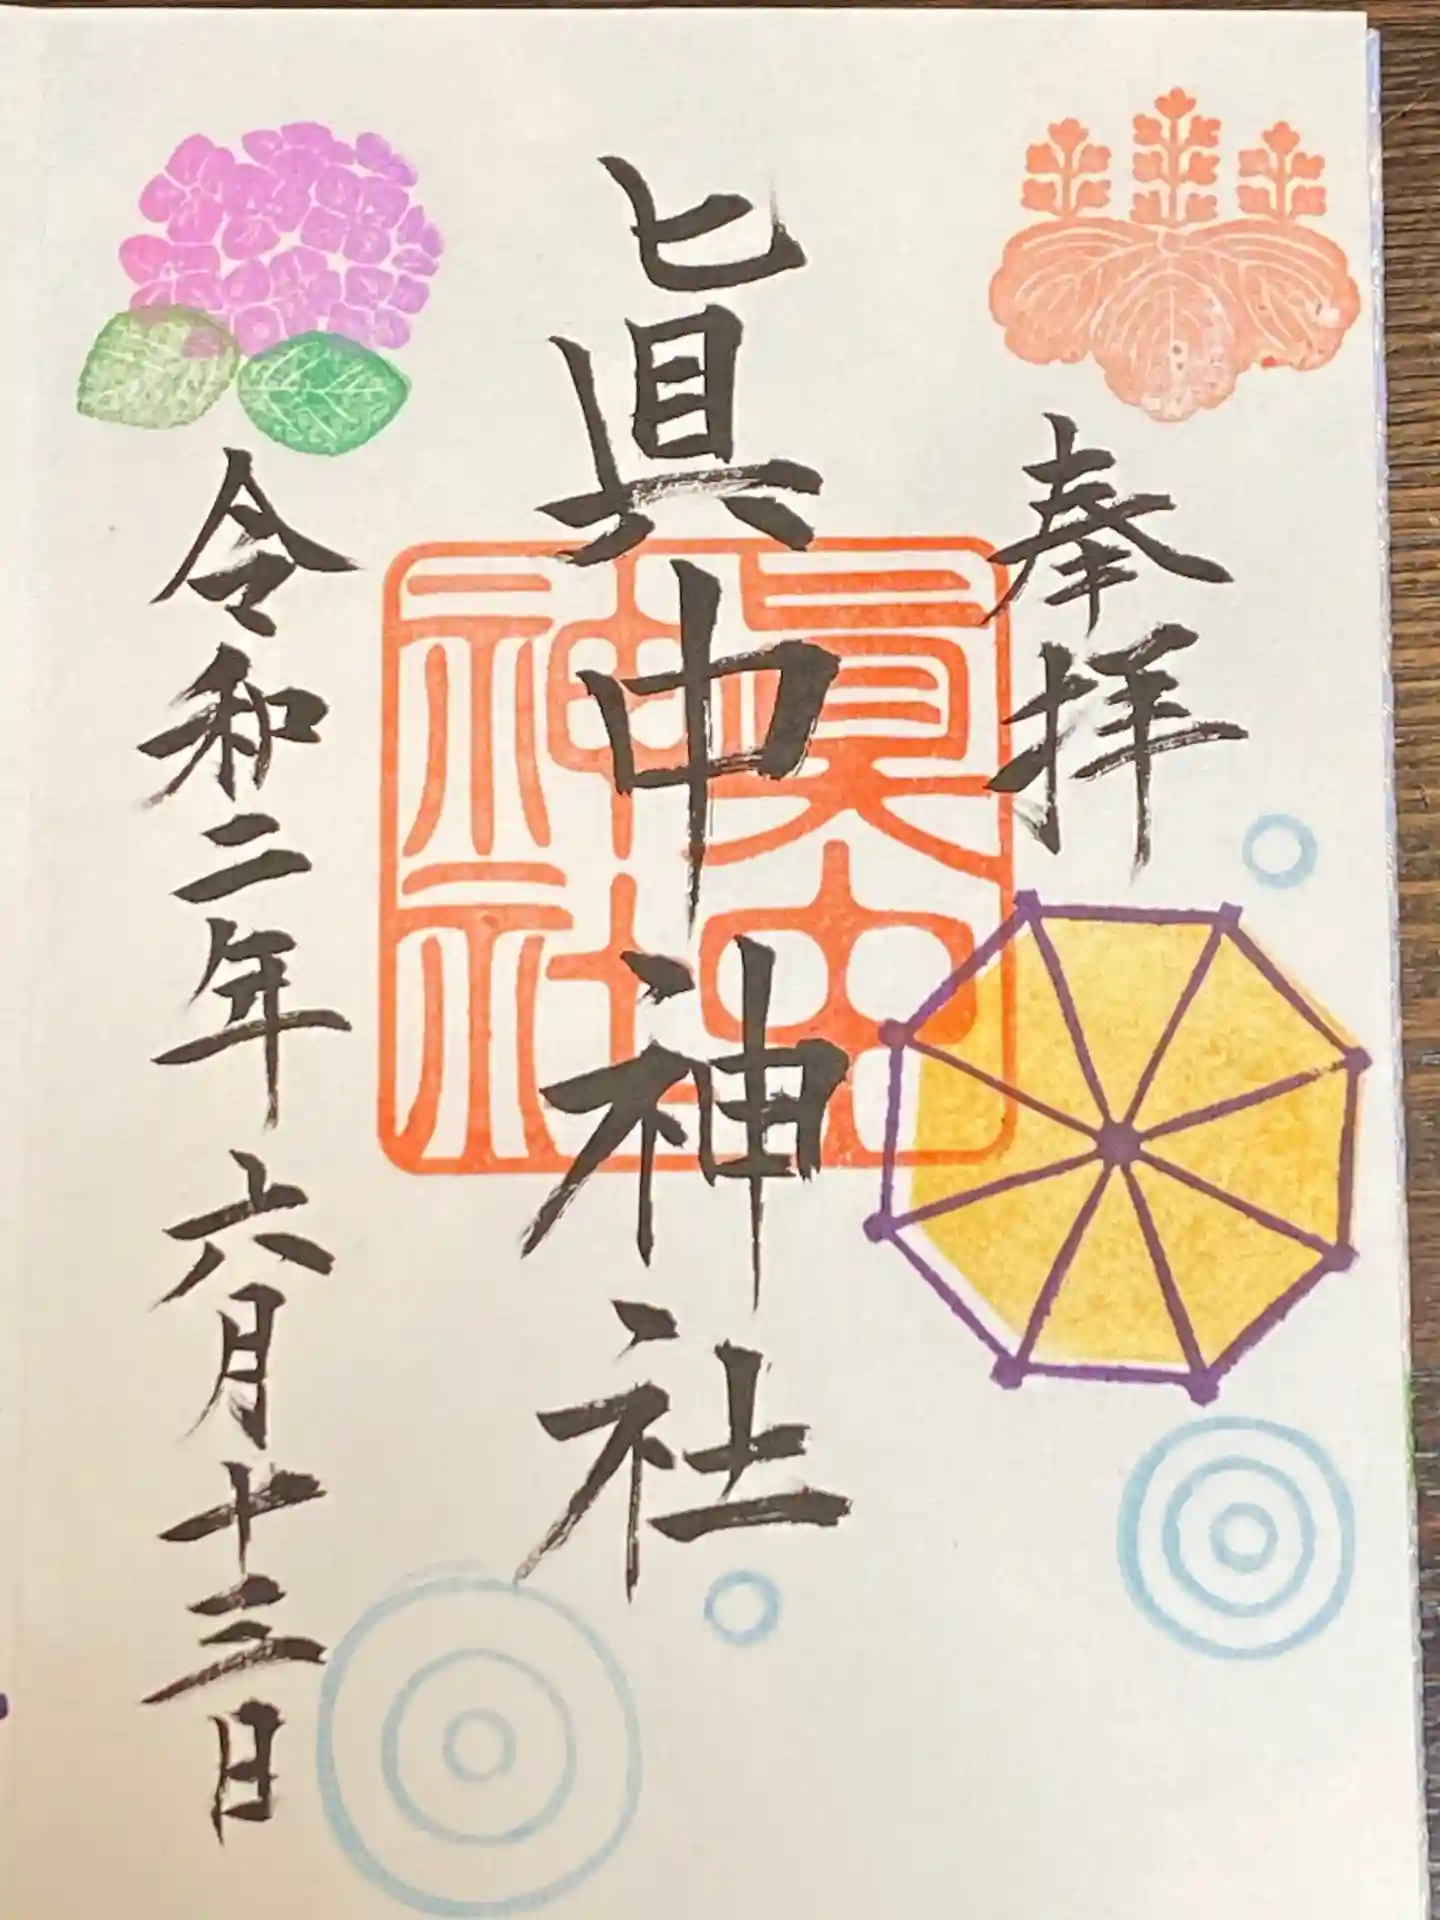 奉拝
眞中神社
眞中
神社
令和二年六月十三日